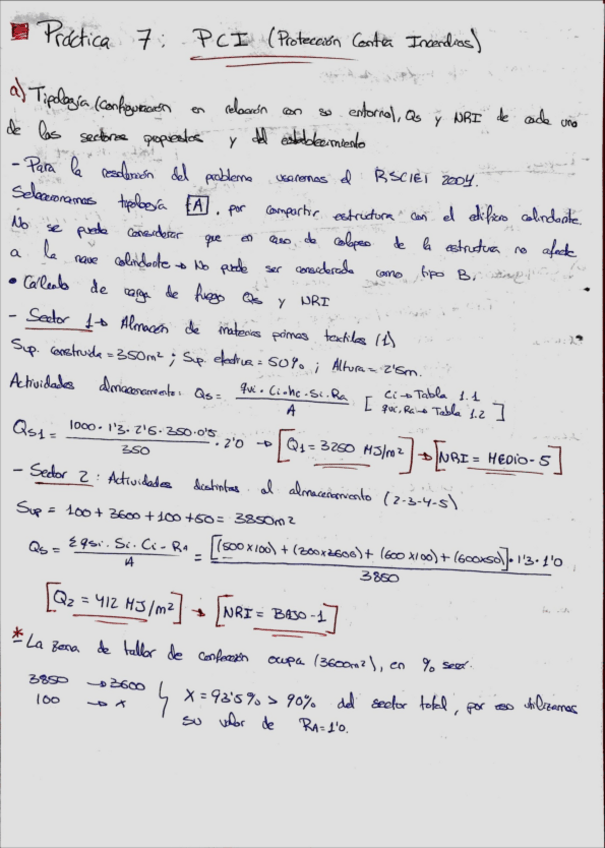 Práctica 7: PCI (Protección Contra Incendios)
a) Tipología (Configuración en relación con su entorno), Qs y NRI de cada uno
de los sectores propuestos y del establecimiento
- Para la resolución del problema usaremos el RSCIEI 2004.
Seleccionamos tipología [A], por compartir estructura con el edificio colindante.
No se puede considerar que en caso de colapso de la estructura no afecte
a la nave colindante → No puede ser considerada como tipo B.
• Cálculo de carga de fuego Qs y NRI
- Sector 1 → Almacén de materias primas textiles (1)
Sup. construida = 350m² ; Sup. efectiva = 50% ; Altura = 2'5m.
Actividades almacenamiento: Qs = qvi·Ci·hc·Si·Ra / A [ Ci → Tabla 1.1
qvi, Ra → Tabla 1.2 ]
Qs1 = 1000·1'3·2'5·350·0'5 / 350 · 2'0 → [Q1 = 3250 MJ/m²] → [NRI = MEDIO-5]
- Sector 2: Actividades distintas al almacenamiento (2-3-4-5)
Sup = 100 + 3600 + 100 + 50 = 3850m²
Qs = Σqsi·Si·Ci·Ra / A = [(500x100) + (300x3600) + (600x100) + (600x50)]·1'3·1'0 / 3850
[Q2 = 412 MJ/m²] → [NRI = BAJO-1]
* - La zona de taller de confección ocupa (3600m²), en % será:
3850 → 3600
100 → x
X = 93'5% > 90% del sector total, por eso utilizamos
su valor de RA = 1'0.